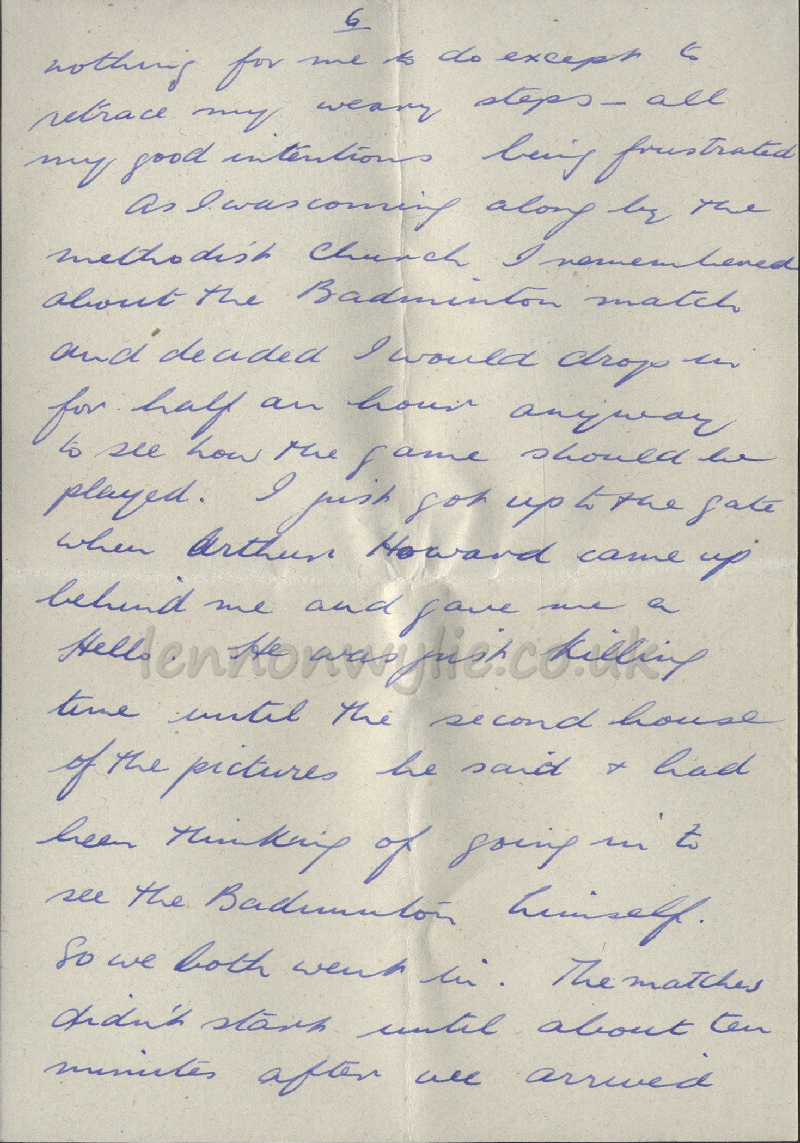 6
nothing for me to do except to
retrace my weary steps - all
my good intentions being frustrated
As I was coming along by the
methodist Church I remembered
about the Badminton match
and decided I would drop in
for half an hour anyway
to see how the game should be
played. I just got up to the gate
when Arthur Howard came up
behind me and gave me a
Hello. He was just killing
time until the second house
of the pictures he said + had
been thinking of going in to
see the Badminton himself.
So we both went in. The matches
didn't start until about ten
minutes after we arrived
lennonwylie.co.uk